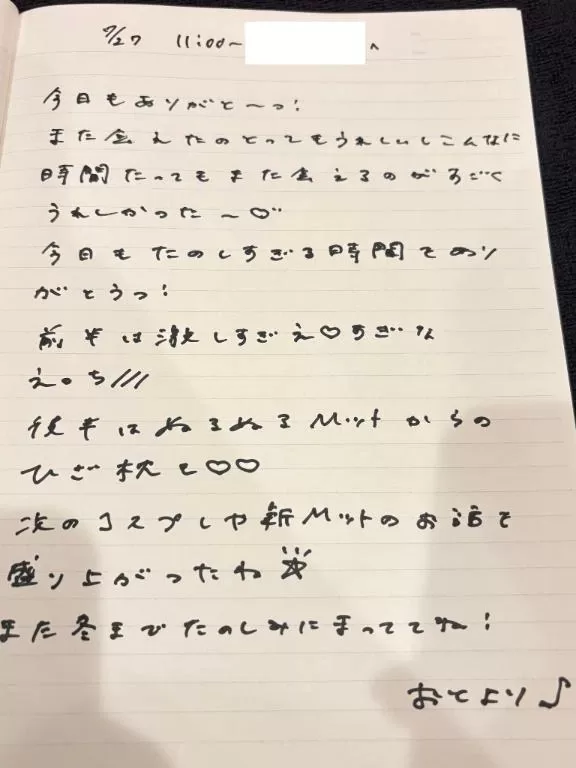 7/27 11:00〜 へ
今日もありがと〜っ!
また会えたのとってもうれしいしこんなに
時間たってもまた会えるのがすごく
うれしかった〜♡
今日もたのしすぎる時間であり
がとうっ!
前半は激しすぎえ♡すぎな
えっち///
後半はぬるぬるMットからの
ひざ枕と♡♡
次のコスプレや新Mットのお話で
盛り上がったね☆
また冬までたのしみにまっててね!
おとより♪